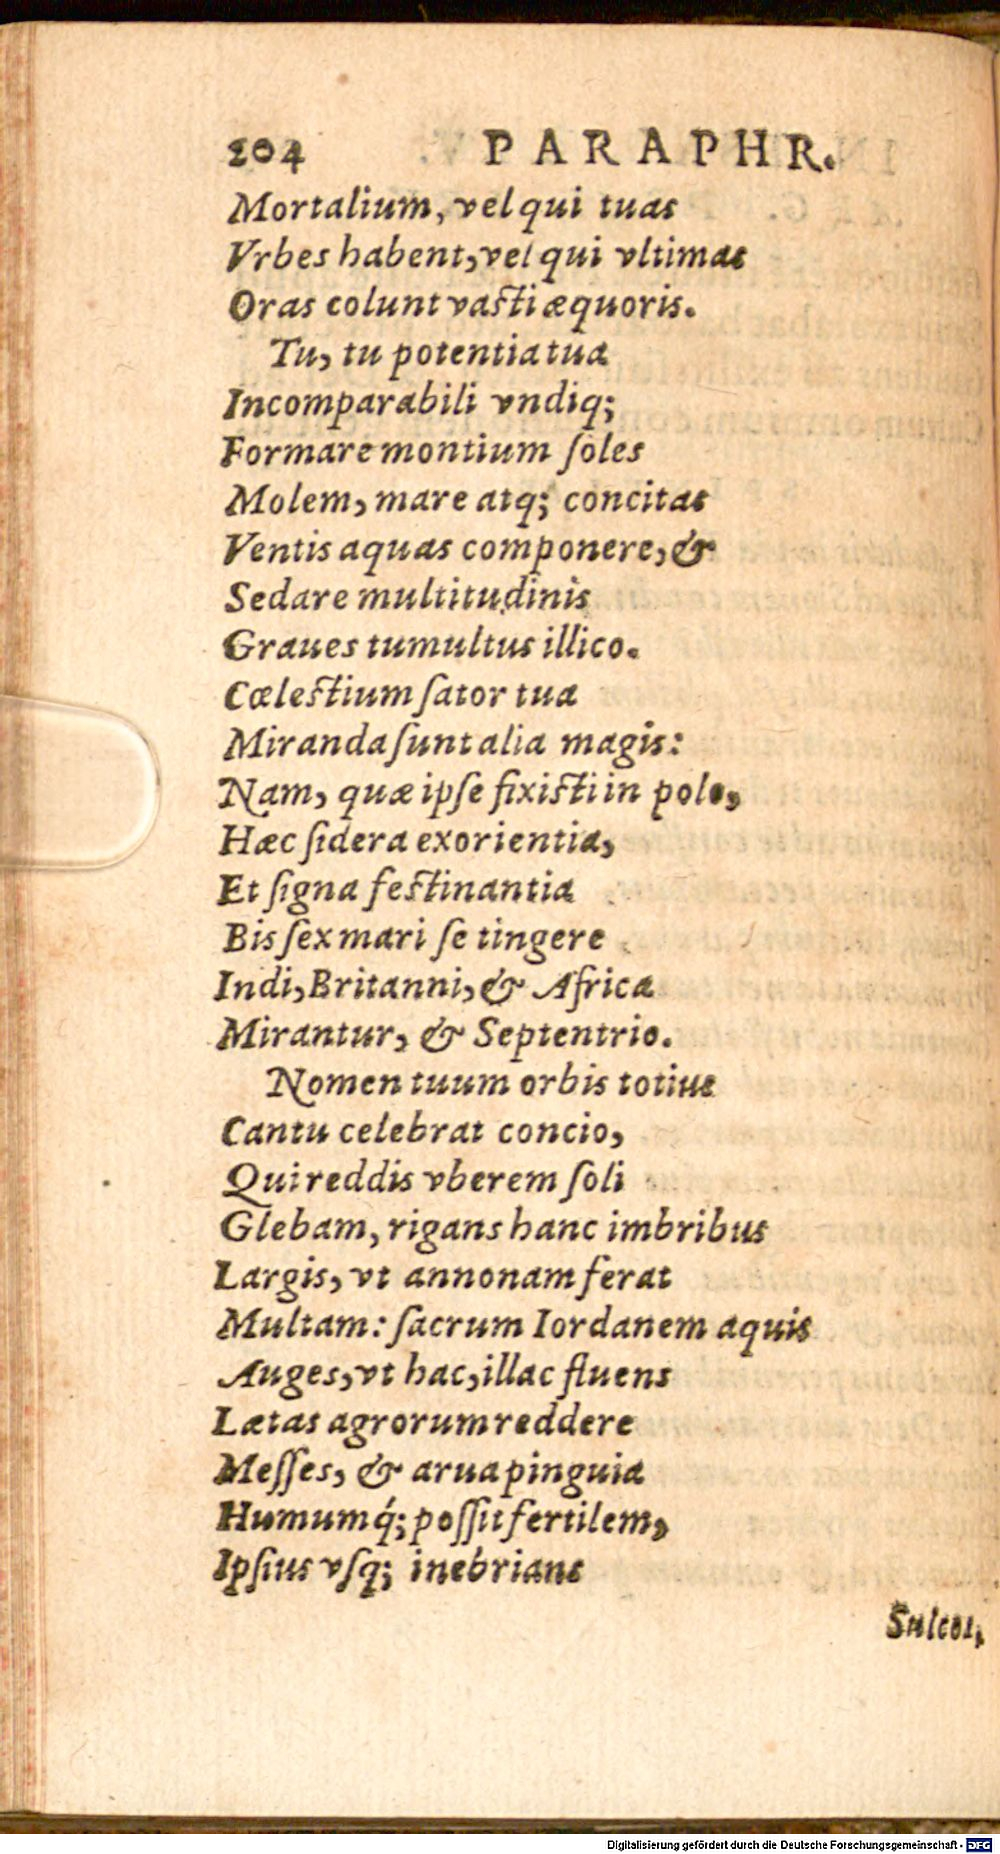 204 PARAPHR.
Mortalium, vel qui tuas
Vrbes habent, vel qui vltimas
Oras colunt vasti æquoris.
Tu, tu potentia tua
Incomparabili vndiq;
Formare montium ſoles
Molem, mare atq; concitas
Ventis aquas componere, &
Sedare multitudinis
Graues tumultus illico.
Cœlestium ſator tua
Miranda ſunt alia magis:
Nam, quæ ipſe fixisti in polo,
Hæc ſidera exorientia,
Et ſigna festinantia
Bis ſex mari ſe tingere
Indi, Britanni, & Africa
Mirantur, & Septentrio.
Nomen tuum orbis totius
Cantu celebrat concio,
Qui reddis vberem ſoli
Glebam, rigans hanc imbribus
Largis, vt annonam ferat
Multam: ſacrum Iordanem aquis
Auges, vt hac, illac fluens
Lætas agrorum reddere
Meſſes, & arua pinguia
Humumq́; poſſit fertilem,
Ipſius vſq; inebrians
Sulcos,
Digitalisierung gefördert durch die Deutsche Forschungsgemeinschaft - DFG